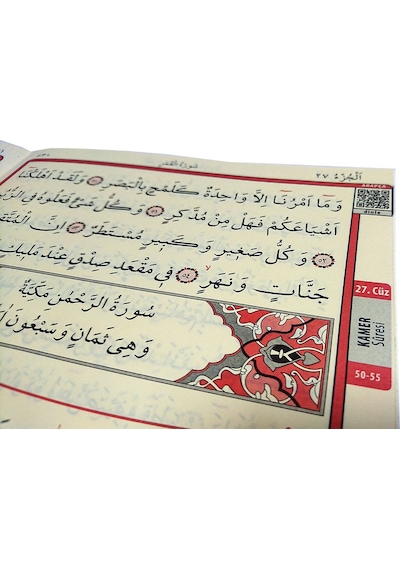 اَلْجُزْءُ ٢٧
سُورَةُ الْقَمَرِ
ARAPÇA
dinle
وَمَٓا اَمْرُنَٓا اِلَّا وَاحِدَةٌ كَلَمْحٍ بِالْبَصَرِ ٥٠ وَلَقَدْ اَهْلَكْنَٓا
اَشْيَاعَكُمْ فَهَلْ مِنْ مُدَّكِرٍ ٥١ وَكُلُّ شَيْءٍ فَعَلُوهُ فِي
٥٢ وَكُلُّ صَغِيرٍ وَكَبِيرٍ مُسْتَطَرٌ ٥٣ اِنَّ
جَنَّاتٍ وَنَهَرٍ ٥٤ فِي مَقْعَدِ صِدْقٍ عِنْدَ مَلِيكٍ
سُورَةُ الرَّحْمٰنِ مَكِّيَّةٌ
وَهِيَ ثَمَانٍ وَسَبْعُونَ
27. Cüz
KAMER
Sûresi
50-55